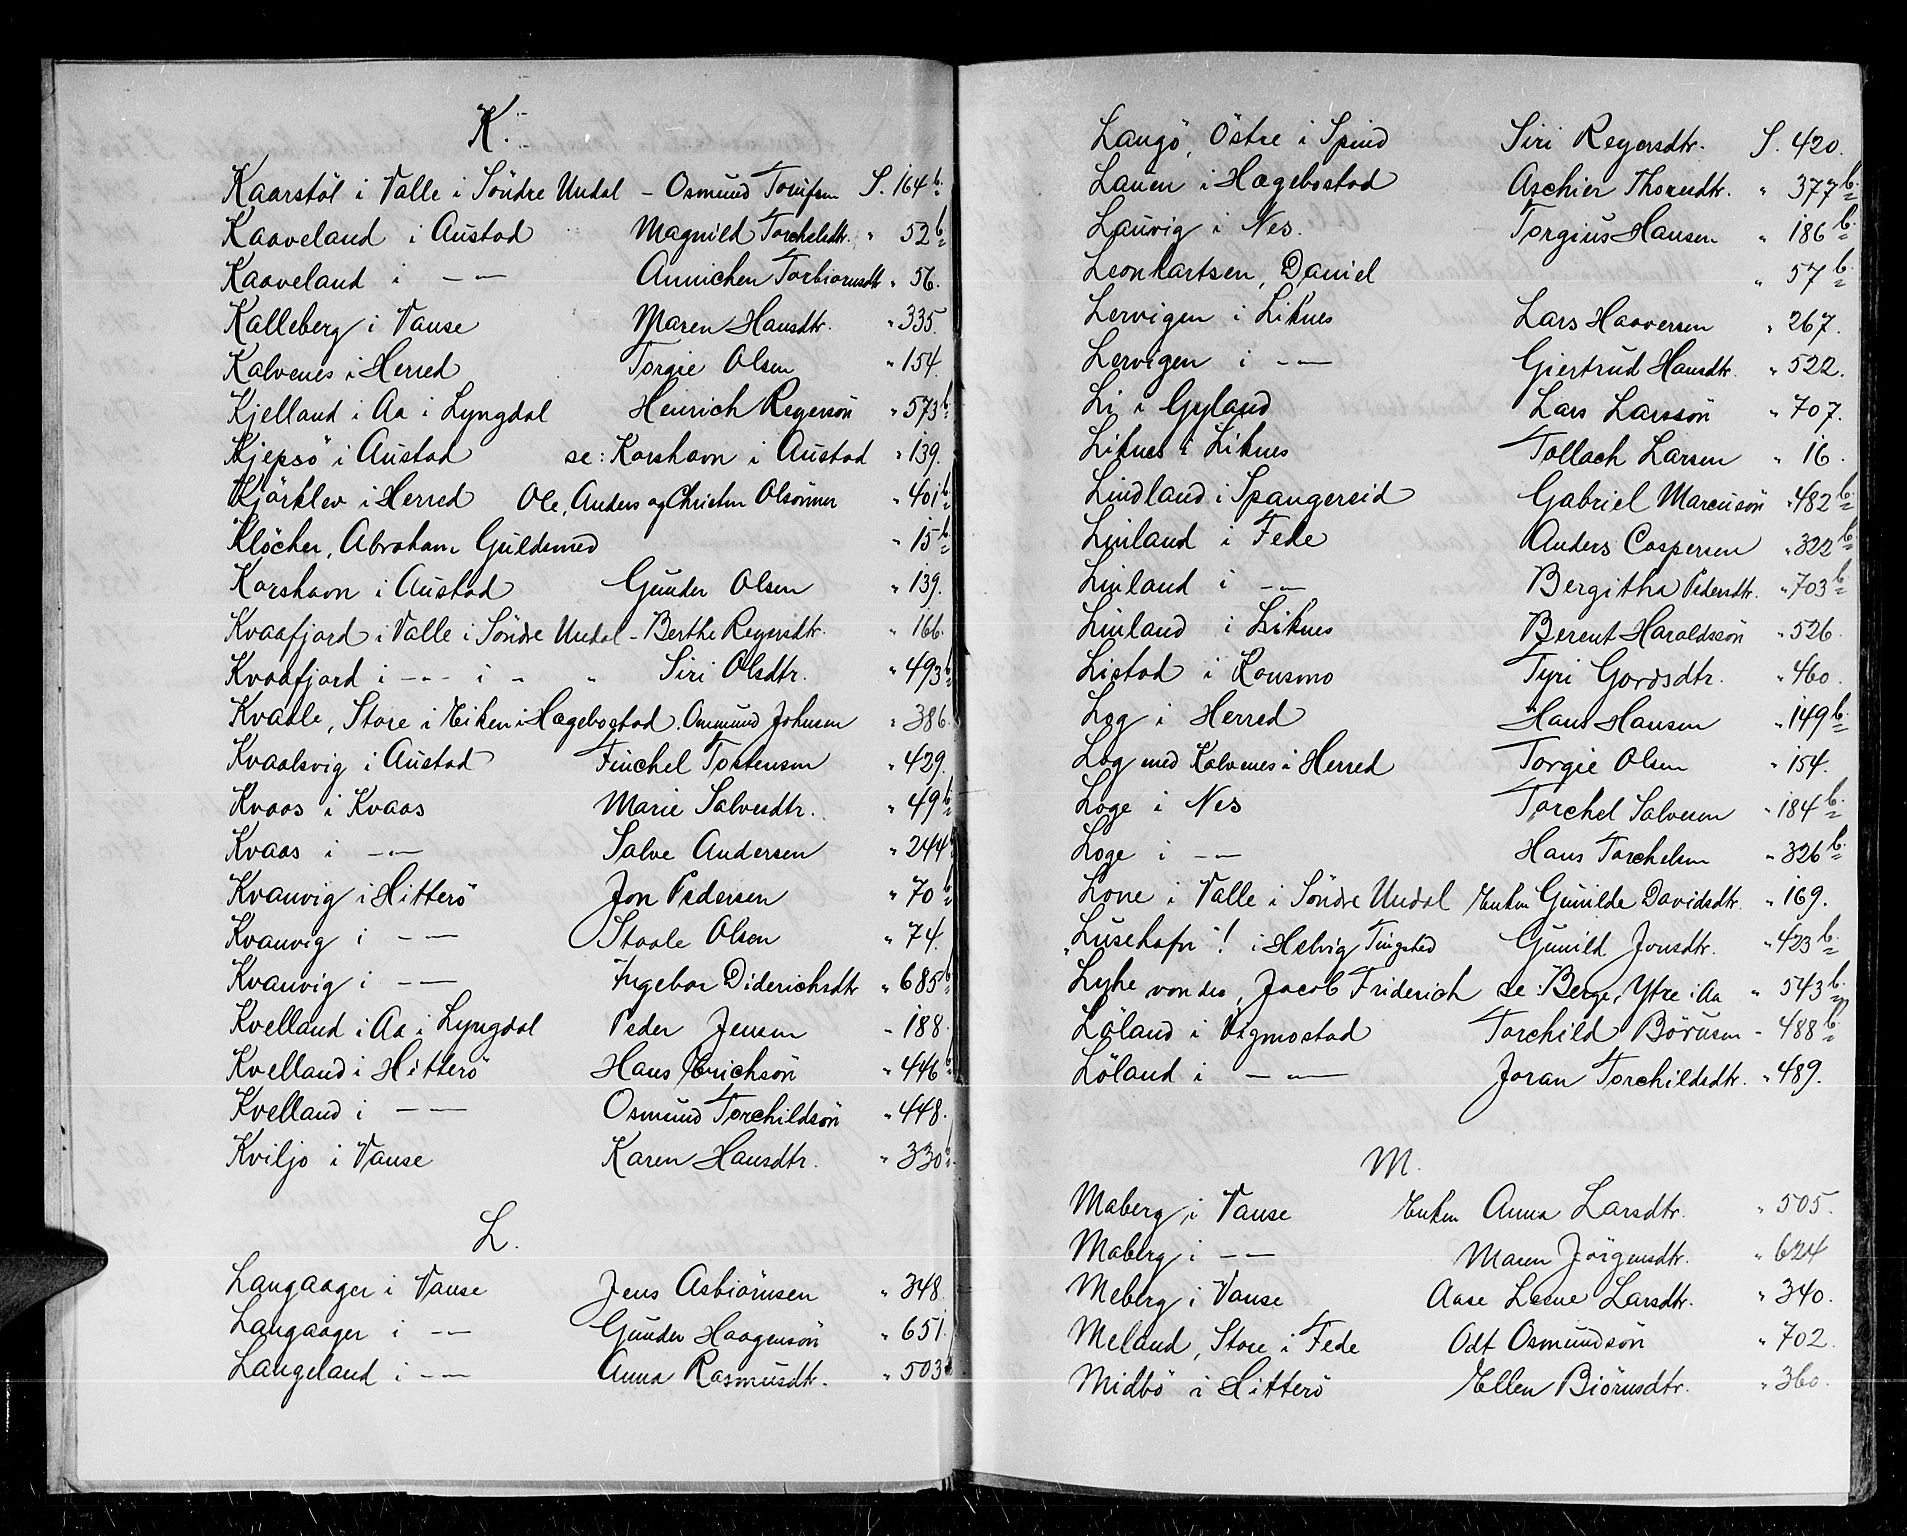 K.
Kaarstöl i Valle i Söndre Undal - Osmund Torifsen S. 164 b.
Kaaveland i Austad Magnild Torchelsdtr. " 52 b
Kaaveland i - " - Annichen Torbiornsdtr " 56.
Kalleberg i Vanse Maren Hansdtr. " 335.
Kalvenes i Herred Torgie Olsen " 154.
Kjelland i Aa i Lyngdal Henrich Regersön " 573 b
Kjepsö i Austad se: Korshavn i Austad " 139.
Kjörklev i Herred Ole, Anders og Christen Olsönner " 401 b
Klöcher, Abraham Guldsmed " 15 b
Korshavn i Austad Gunder Olsen " 139.
Kvaafjord i Valle i Söndre Undal - Berthe Regersdtr. " 166.
Kvaafjord i - " - i " " Siri Olsdtr. " 493 b
Kvaale, Store i Eiken i Hægebostad. Ommund Johnsen " 386
Kvaalsvig i Austad Finchel Tostensen " 429.
Kvaas i Kvaas Marie Salvesdtr. " 49 b
Kvaas i - " - Salve Andersen " 244 b
Kvanvig i Hitterö Jon Pedersen " 70 b
Kvanvig i - " - Staale Olsen " 74.
Kvanvig i - " - Ingebor Diderichsdtr " 685 b
Kvelland i Aa i Lyngdal Peder Jensen " 188.
Kvelland i Hitterö Hans Erichsön " 446 b
Kvelland i - " - Osmund Torchildsön " 448.
Kviljo i Vanse Karen Hansdtr. " 330 b
L.
Langaager i Vanse Jens Asbiörnsen " 348.
Langaager i - " - Gunder Haagensön " 651.
Langeland i - " - Anna Rasmusdtr. " 503
Langö, Östre i Spind Siri Regersdtr. S. 420.
Lauen i Hægebostad Aschier Thorsdtr. " 377 b.
Lauvig i Nes. Torgius Hansen " 186 b.
Leonhartsen, Daniel " 57 b.
Lervigen i Liknes Lars Haaversen " 267.
Lervigen i - " - Giertrud Hansdtr. " 522.
Li i Gyland Lars Larssön " 707.
Liknes i Liknes Tollach Larsen " 16.
Lindland i Spangereid Gabriel Marcusön " 482 b.
Linland i Fede Anders Caspersen " 322 b
Linland i - " - Bergitha Pedersdtr. " 703 b.
Linland i Liknes Berent Haraldssön " 526.
Listad i Konsmo Tyri Gordsdtr. " 460.
Log i Herred Hans Hansen " 149 b.
Log med Kalvenes i Herred Torgie Olsen " 154.
Loge i Nes Torchel Salvesen " 184 b.
Loge i - " - Hans Torchelsen " 326 b.
Lone i Valle i Söndre Undal Enken Gunilde Davidsdtr. " 169.
"Lusehafn"! i Helvig Tingsted Gunild Jonsdtr. " 423 b.
Lyhe von der, Jacob Friderich se: Berge, Ytre i Aa " 543 b.
Löland i Vigmostad Torchild Börusen - 488 b.
Löland i - " - Joran Torchildsdtr. " 489.
M.
Maberg, i Vanse Enken Anna Larsdtr. " 505.
Maberg i - " - Maren Jörgensdtr. " 624
Meberg i Vanse Aase Lesne Larsdtr. " 340.
Meland, Store i Fede Odt Osmundsön " 702.
Midbö i Hitterö Ellen Biörnsdtr. " 360.